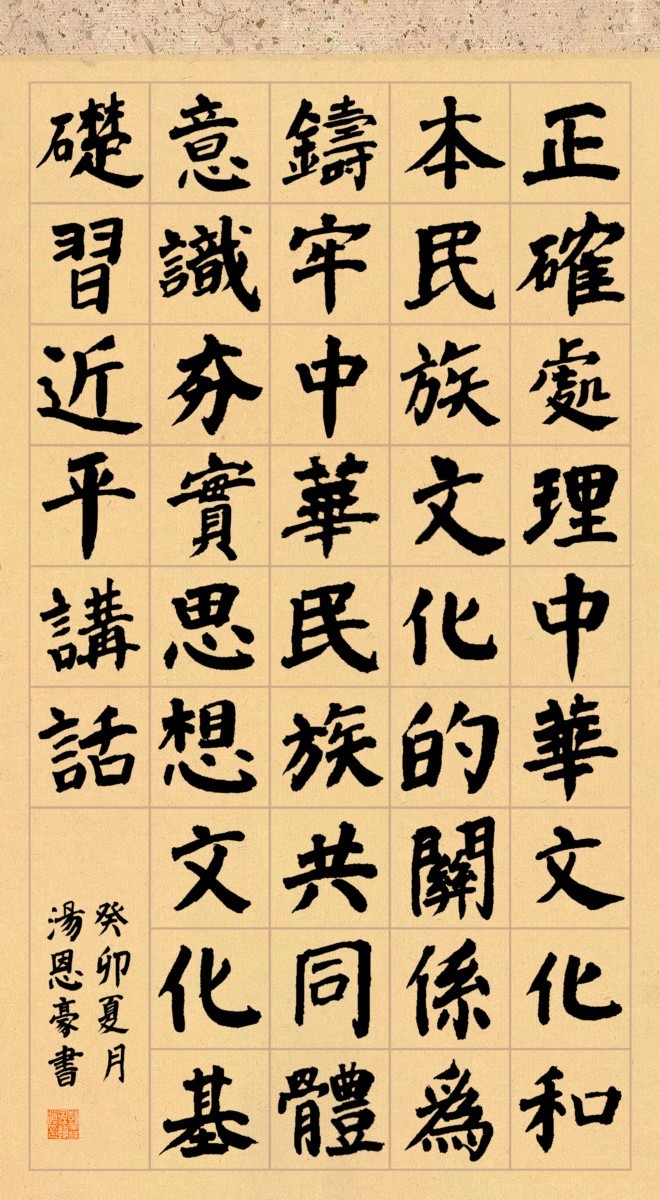 正確處理中華文化和
本民族文化的關係為
鑄牢中華民族共同體
意識夯實思想文化基
礎習近平講話
癸卯夏月
湯恩豪書